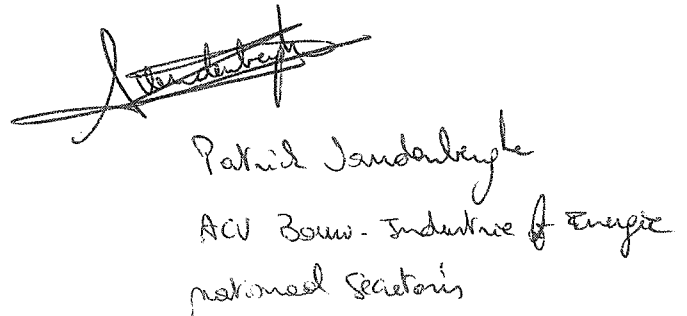 Vandenberghe
Patrick Vandenberghe
ACV Bouw - Industrie & Energie
nationaal secretaris